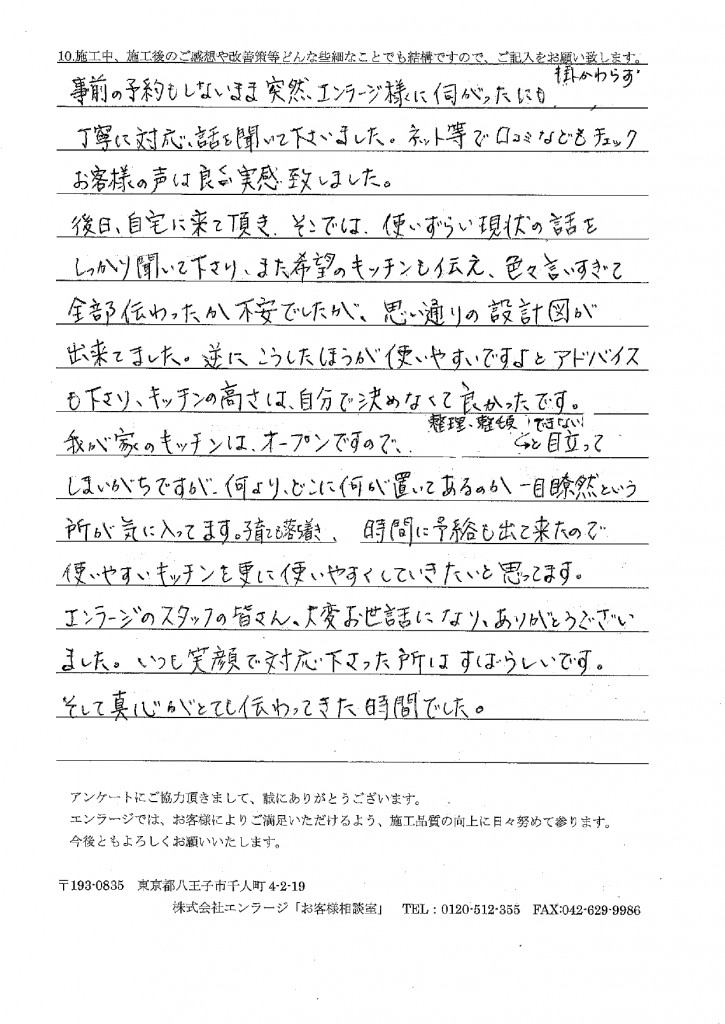 10.施工中、施工後のご感想や改善策等どんな些細なことでも結構ですので、ご記入をお願い致します。
事前の予約もしないまま突然、エンラージ様に伺がったにも掛かわらず
丁寧に対応、話を聞いて下さいました。ネット等で口コミなどもチェック
お客様の声は良く実感致しました。
後日、自宅に来て頂き、そこでは、使いずらい現状の話を
しっかり聞いて下さり、また希望のキッチンも伝え、色々言いすぎて
全部伝わったか不安でしたが、思い通りの設計図が
出来てました。逆にこうしたほうが使いやすいですよとアドバイス
も下さり、キッチンの高さは、自分で決めなくて良かったです。
我が家のキッチンは、オープンですので、整理、整頓ができないと目立って
しまいがちですが、何より、どこに何が置いてあるのか一目瞭然という
所が気に入ってます。子育ても落ち着き、時間に予裕も出て来たので
使いやすいキッチンを更に使いやすくしていきたいと思ってます。
エンラージのスタッフの皆さん、大変お世話になり、ありがとうござい
ました。いつも笑顔で対応下さった所はすばらしいです。
そして真心がとても伝わってきた時間でした。
アンケートにご協力頂きまして、誠にありがとうございます。
エンラージでは、お客様によりご満足いただけるよう、施工品質の向上に日々努めて参ります。
今後ともよろしくお願いいたします。
〒193-0835 東京都八王子市千人町4-2-19
株式会社エンラージ「お客様相談室」 TEL：0120-512-355 FAX:042-629-9986